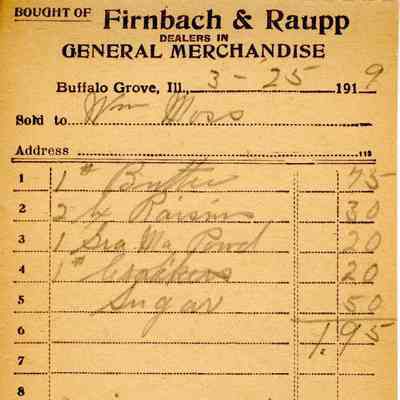 BOUGHT OF Firnbach & Raupp
DEALERS IN
GENERAL MERCHANDISE
Buffalo Grove, Ill., 3-25 1919
Sold to Wm Moss
Address 115
1 1# Butter 75
2 2 Raisins 30
3 1 Powd 20
4 1# Crackers 20
5 Sugar 50
6 1.95
7
8